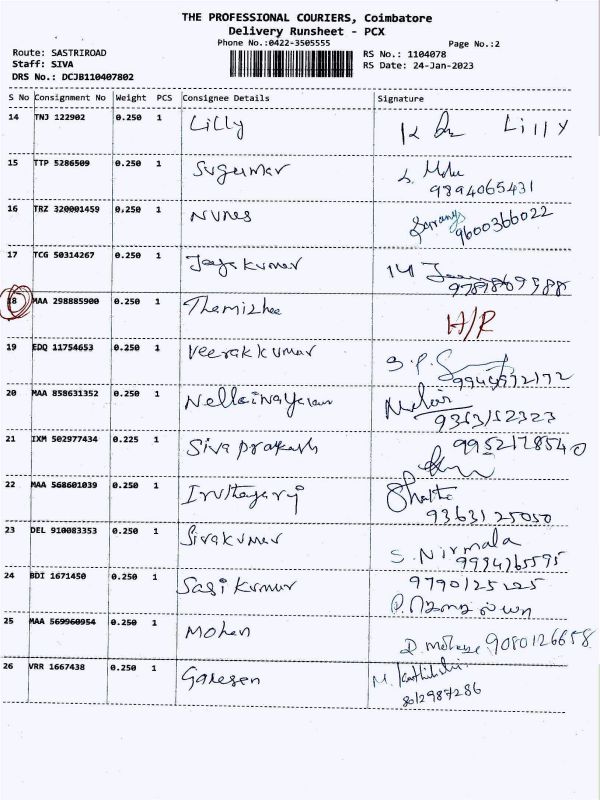 THE PROFESSIONAL COURIERS, Coimbatore
Delivery Runsheet - PCX
Phone No.:0422-3505555
Page No.:2
Route: SASTRIROAD
RS No.: 1104078
Staff: SIVA
RS Date: 24-Jan-2023
DRS No.: DCJB110407802
S No Consignment No Weight PCS Consignee Details Signature
14 TNJ 122902 0.250 1 Lilly Lilly
15 TTP 5286509 0.250 1 Sugumar
9894065431
16 TRZ 320001459 0.250 1 NVNES
9600366022
17 TCG 50314267 0.250 1 Jayakumar
18 MAA 298885900 0.250 1 Themizhee H/R
19 EDQ 11754653 0.250 1 Veerakkumar
20 MAA 858631352 0.250 1 Nellainayagam
21 IXM 502977434 0.225 1 Siva prakash 9952178540
22 MAA 568601039 0.250 1
9363125050
23 DEL 910083353 0.250 1 Sivakumar S. Nirmala
24 BDI 1671450 0.250 1 Sasikumar 9790125225
25 MAA 569960954 0.250 1 Mohan
9080126658
26 VRR 1667438 0.250 1 Ganesan
8012987286